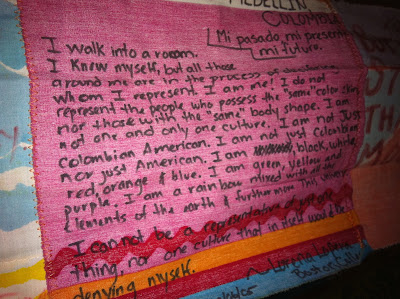 MEDELLIN
COLOMBIA
Mi pasado, mi presente
mi futuro.
I walk into a room.
I know myself, but all those
around me are in the process of
whom I represent. I am me! I do not
represent the people who possess the "same" color skin,
nor those with the "same" body shape. I am
not one and only one culture. I am not Just
Colombian American. I am not just Colombian
nor just American. I am black, white,
red, orange & blue. I am green, yellow and
purple. I am a rainbow mixed with all the
elements of the earth & further more this universe
I cannot be a representative of
thing, nor one culture that in itself would be
denying myself.